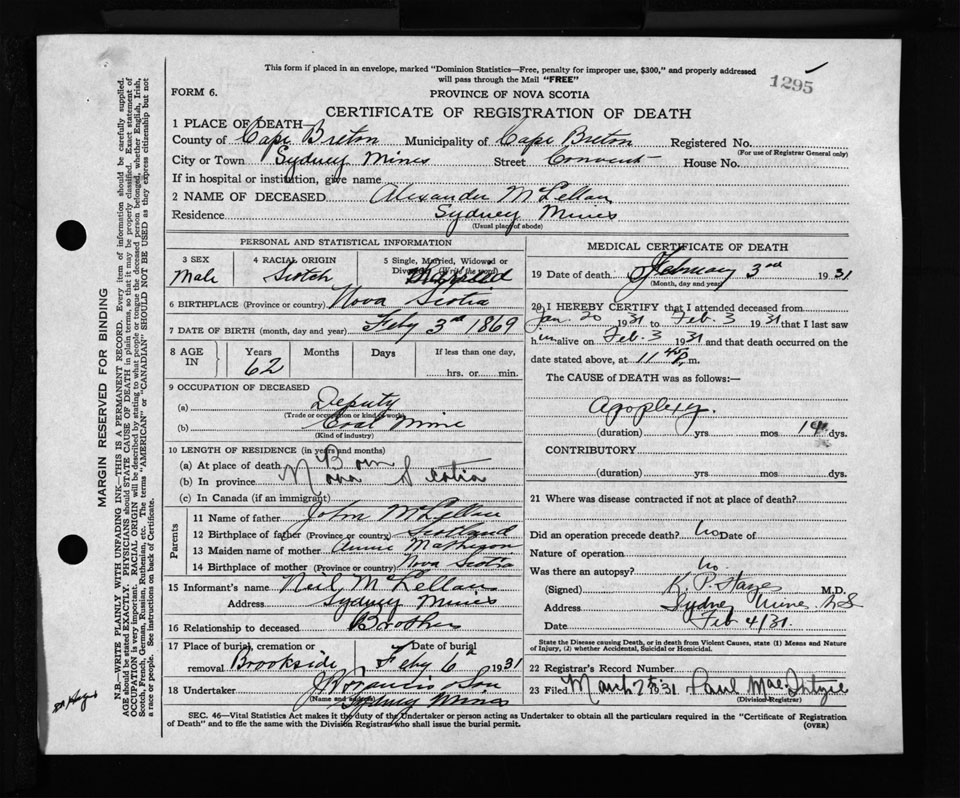 This form if placed in an envelope, marked "Dominion Statistics—Free, penalty for improper use, $300," and properly addressed
will pass through the Mail "FREE"
1295
FORM 6. PROVINCE OF NOVA SCOTIA
CERTIFICATE OF REGISTRATION OF DEATH
1 PLACE OF DEATH—
County of Cape Breton Municipality of Cape Breton Registered No.
(For use of Registrar General only)
City or Town Sydney Mines Street Convent House No.
If in hospital or institution, give name
2 NAME OF DECEASED Alexander McLellan
Residence Sydney Mines
(Usual place of abode)
PERSONAL AND STATISTICAL INFORMATION
3 SEX 4 RACIAL ORIGIN 5 Single, Married, Widowed or
Divorced (Write the word)
Male Scotch Married
6 BIRTHPLACE (Province or country) Nova Scotia
7 DATE OF BIRTH (month, day and year) Feby 3rd 1869
8 AGE IN Years Months Days If less than one day,
62 hrs. or min.
9 OCCUPATION OF DECEASED
(a) Deputy
(Trade or occupation or kind of work)
(b) Coal Mine
(Kind of industry)
10 LENGTH OF RESIDENCE (in years and months)
(a) At place of death Born
(b) In province Nova Scotia
(c) In Canada (if an immigrant)
Parents
11 Name of father John McLellan
12 Birthplace of father (Province or country) Scotland
13 Maiden name of mother Annie Matheson
14 Birthplace of mother (Province or country) Nova Scotia
15 Informant's name Neil McLellan
Address Sydney Mines
16 Relationship to deceased Brother
17 Place of burial, cremation or Date of burial
removal Brookside Feby 6th 1931
18 Undertaker & Son
(Name and address) Sydney Mines
MEDICAL CERTIFICATE OF DEATH
19 Date of death February 3rd 1931
(Month, day and year)
20 I HEREBY CERTIFY that I attended deceased from
Jan. 20 1931 to Feb. 3 1931 that I last saw
him alive on Feb. 3 1931 and that death occurred on the
date stated above, at 11 45 P. m.
The CAUSE of DEATH was as follows:—
Apoplexy.
(duration) yrs mos 14 dys.
CONTRIBUTORY
(duration) yrs. mos. dys.
21 Where was disease contracted if not at place of death?
Did an operation precede death? no Date of
Nature of operation
Was there an autopsy? no.
(Signed) K. P. Hayes M.D.
Address Sydney Mines N.S
Date Feb 4/31.
State the Disease causing Death, or in death from Violent Causes, state (1) Means and Nature
of Injury, (2) whether Accidental, Suicidal or Homicidal.
22 Registrar's Record Number
23 Filed 1931 Paul MacIntyre
(Division Registrar)
SEC. 46—Vital Statistics Act makes it the duty of the Undertaker or person acting as Undertaker to obtain all the particulars required in the "Certificate of Registration
of Death" and to file same with the Division Registrar who shall issue the burial permit. (OVER)
MARGIN RESERVED FOR BINDING
N.B.—WRITE PLAINLY WITH UNFADING INK—THIS IS A PERMANENT RECORD. Every item of information should be carefully supplied.
AGE should be stated EXACTLY. PHYSICIANS should STATE CAUSE OF DEATH in plain terms, so that it may be properly classified. Exact statement of
OCCUPATION is very important. RACIAL ORIGIN will be described by stating to what people or tongue the deceased person belonged, whether English, Irish,
Scotch, French, German, Russian, Ruthenian, etc. The terms "AMERICAN" or "CANADIAN" SHOULD NOT BE USED as they express citizenship but not
a race or people. See instructions on back of Certificate.